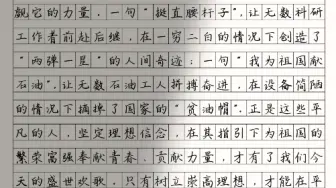 靓它的力量，一句“挺直腰杆子”，让无数科研
工作着前赴后继，在一穷二白的情况下创造了
“两弹一星”的人间奇迹：一句“我为祖国献
石油”，让无数石油工人拼搏奋进，在设备简陋
的情况下摘掉了国家的“贫油帽”。正是这些平
凡的人，坚定理想信念，在其指引下为祖国的
繁荣富强奉献青春、贡献力量，才有了我们今
天的盛世欢歌，只有树立崇高理想，才能在平